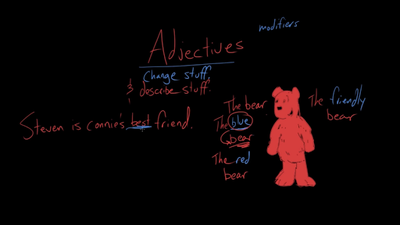 modifiers
Adjectives
change stuff,
& describe stuff.
Steven is Connie's best friend.
The bear
The blue
bear
The red
bear
The friendly
bear